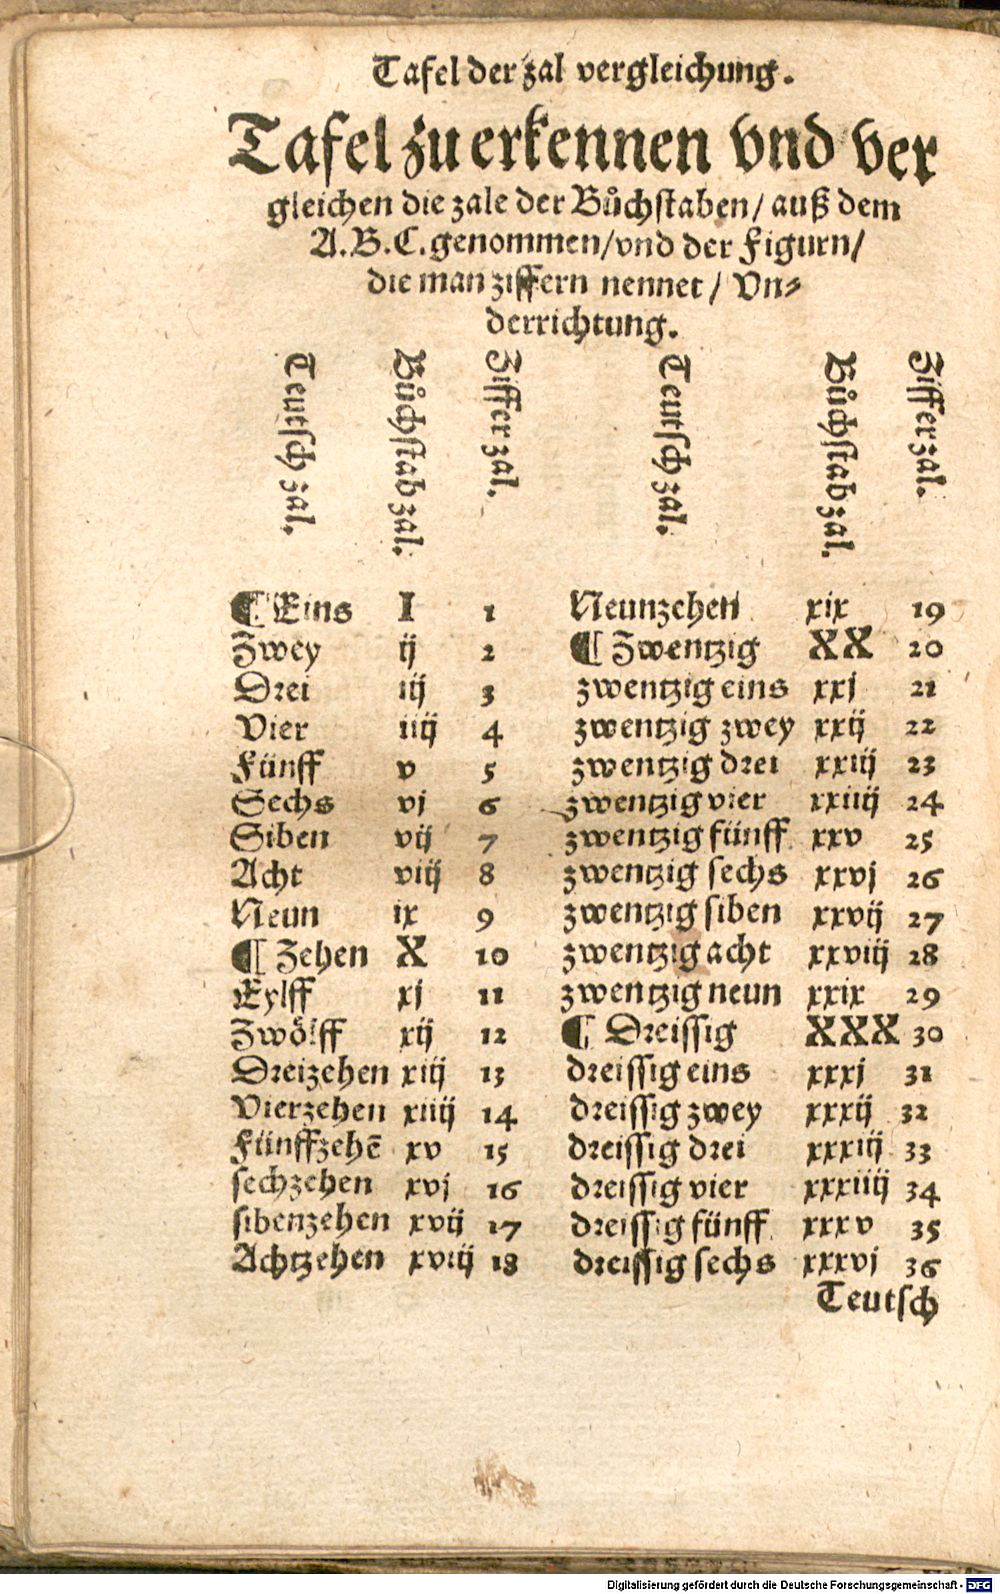 Tafel der zal vergleichung.
Tafel zu erkennen vnd ver
gleichen die zale der Bůchstaben/ auß dem
A.B.C. genommen/ vnd der Figurn/
die man ziffern nennet/ Vn-
derrichtung.
Teutsch zal. Bůchstab zal. Ziffer zal. Teutsch zal. Bůchstab zal. Ziffer zal.
¶ Eins I 1 Neunzehen xix 19
Zwey ij 2 ¶ Zwentzig XX 20
Drei iij 3 zwentzig eins xxj 21
Vier iiij 4 zwentzig zwey xxij 22
Fünff v 5 zwentzig drei xxiij 23
Sechs vj 6 zwentzig vier xxiiij 24
Siben vij 7 zwentzig fünff xxv 25
Acht viij 8 zwentzig sechs xxvj 26
Neun ix 9 zwentzig siben xxvij 27
¶ Zehen X 10 zwentzig acht xxviij 28
Eylff xj 11 zwentzig neun xxix 29
Zwölff xij 12 ¶ Dreissig XXX 30
Dreizehen xiij 13 dreissig eins xxxj 31
Vierzehen xiiij 14 dreissig zwey xxxij 32
Fünffzehē xv 15 dreissig drei xxxiij 33
sechzehen xvj 16 dreissig vier xxxiiij 34
sibenzehen xvij 17 dreissig fünff xxxv 35
Achtzehen xviij 18 dreissig sechs xxxvj 36
Teutsch
Digitalisierung gefördert durch die Deutsche Forschungsgemeinschaft - DFG